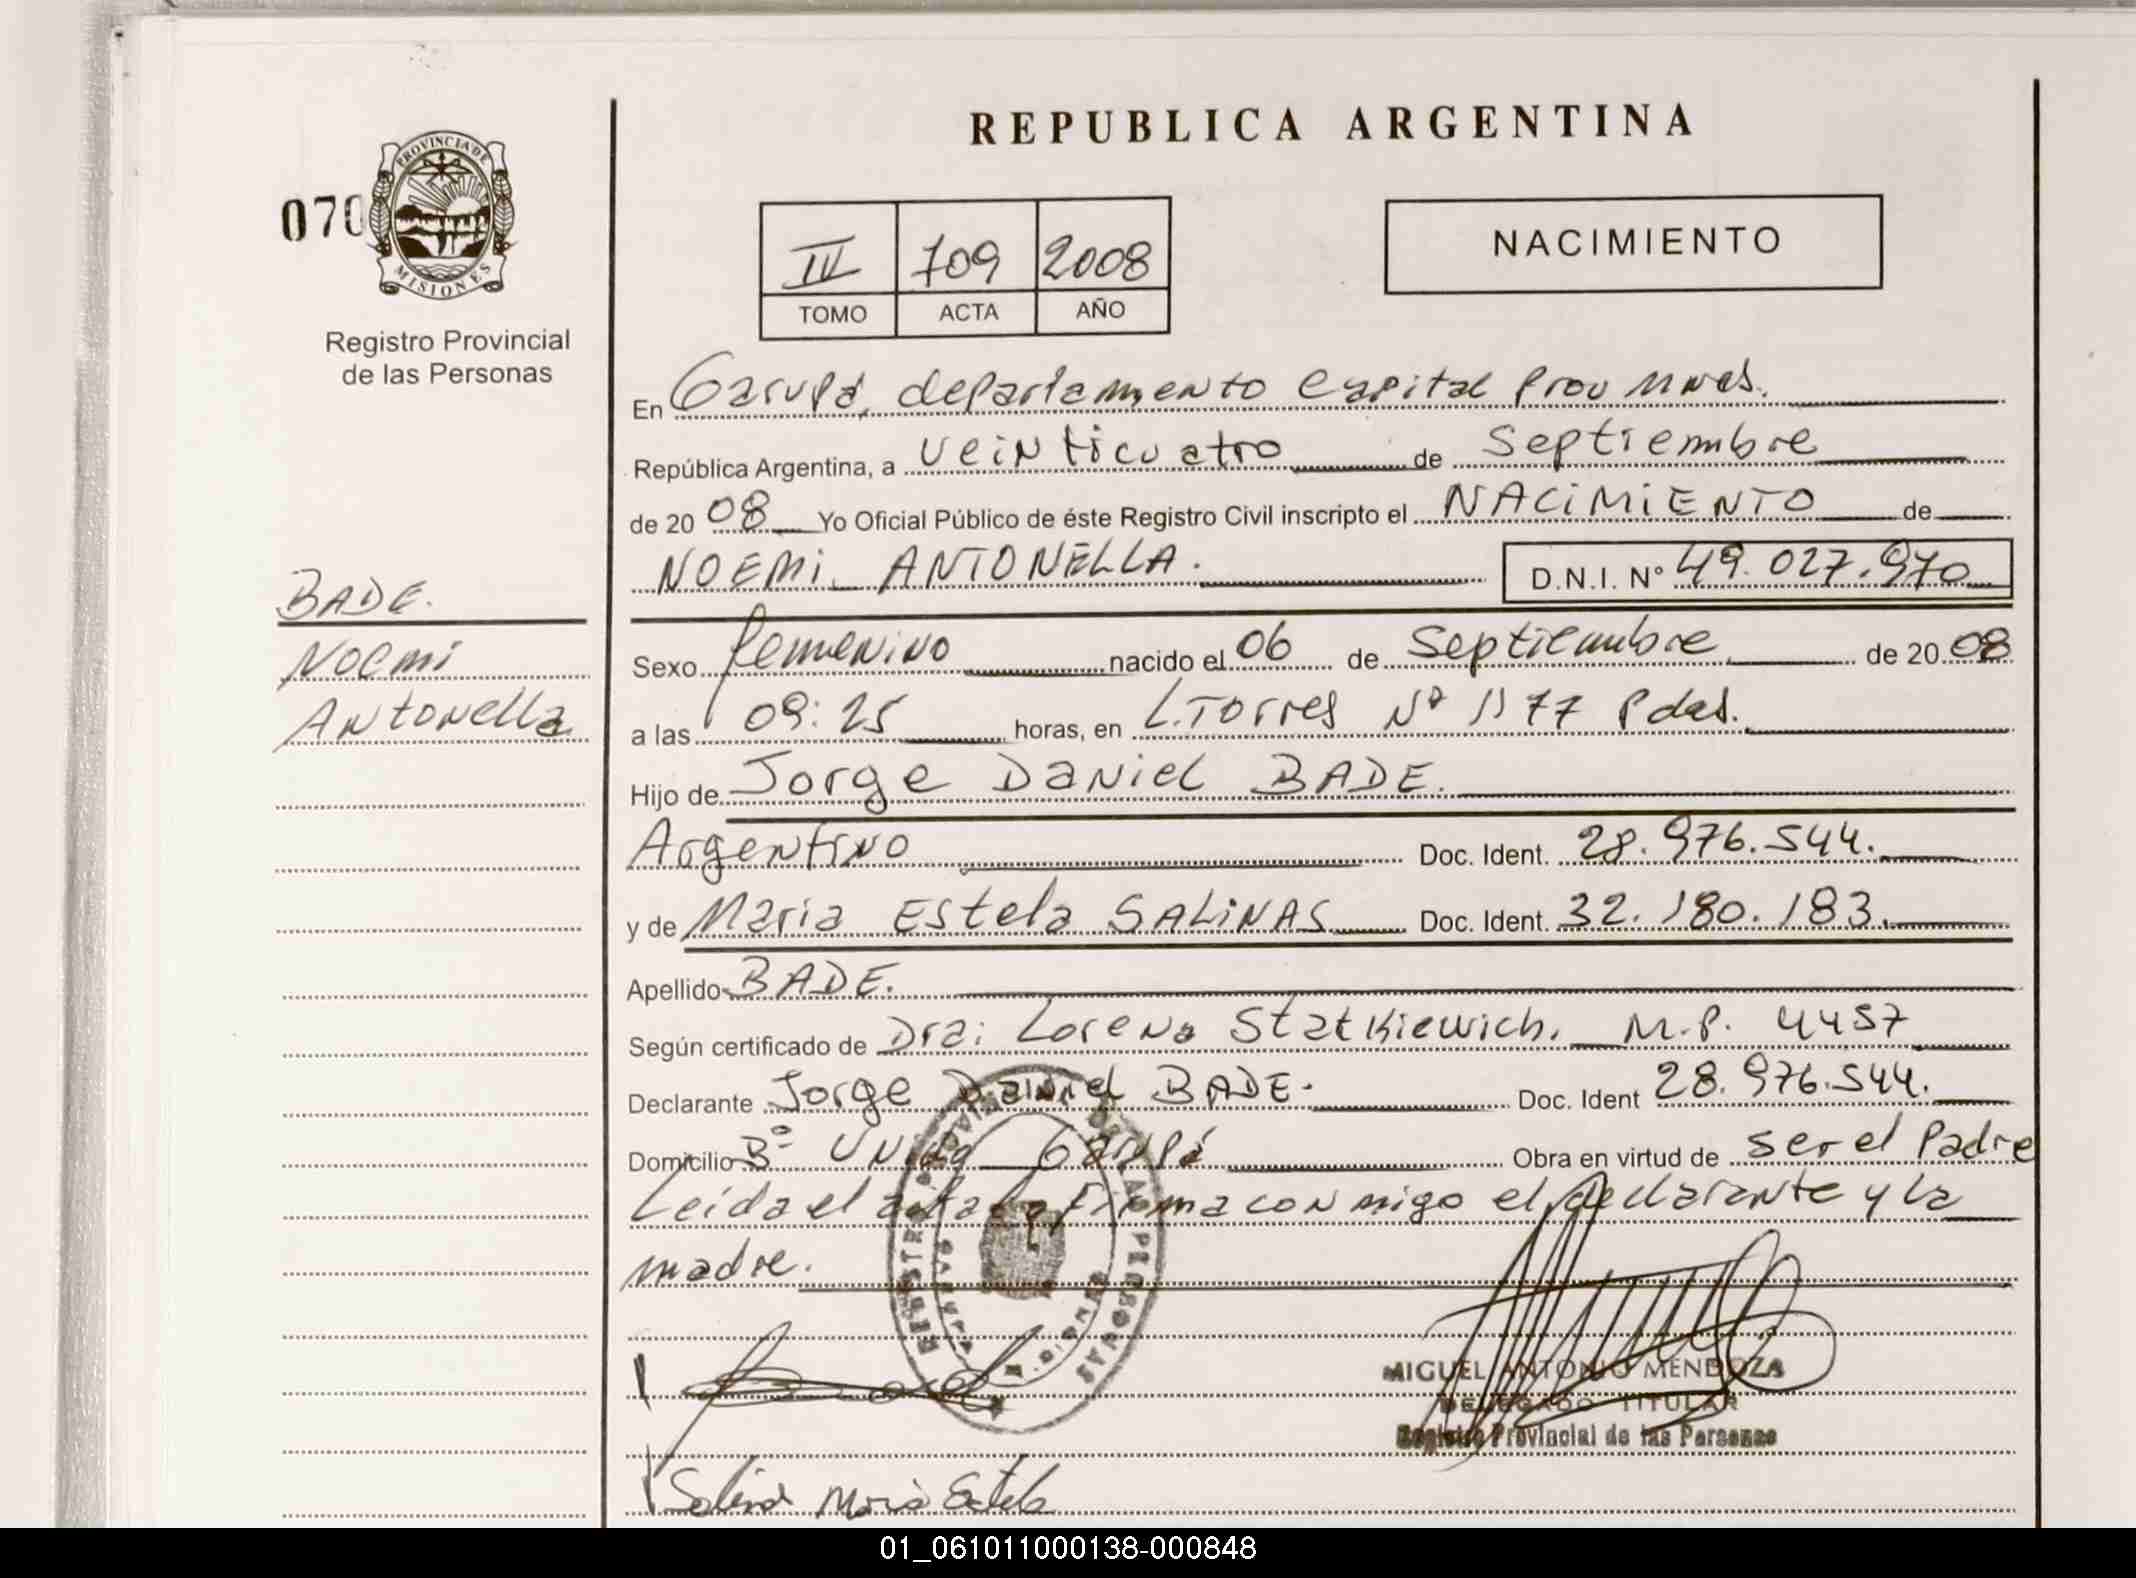 REPUBLICA ARGENTINA
070
PROVINCIA DE
MISIONES
Registro Provincial
de las Personas
IV 709 2008
TOMO ACTA AÑO
NACIMIENTO
En Garupá, departamento Capital Prov Mnes.
República Argentina, a veinticuatro de Septiembre
de 2008 Yo Oficial Público de éste Registro Civil inscripto el NACIMIENTO de
NOEMI ANTONELLA. D.N.I. Nº 49.027.970
BADE.
Noemi
Antonella
Sexo femenino nacido el 06 de Septiembre de 2008
a las 09:25 horas, en L. Torres Nº 1177 Pdas.
Hijo de Jorge Daniel BADE.
Argentino Doc. Ident. 28.976.544.
y de Maria Estela SALINAS Doc. Ident. 32.180.183.
Apellido BADE.
Según certificado de Dra: Lorena Statkiewich. M.P. 4457
Declarante Jorge Daniel BADE. Doc. Ident 28.976.544.
Domicilio Bº Unido Garupá Obra en virtud de ser el Padre
Leída el acta la Firma conmigo el declarante y la
madre.
MIGUEL ANTONIO MENDOZA
DELEGADO TITULAR
Registro Provincial de las Personas
Salinas Maria Estela
01_061011000138-000848